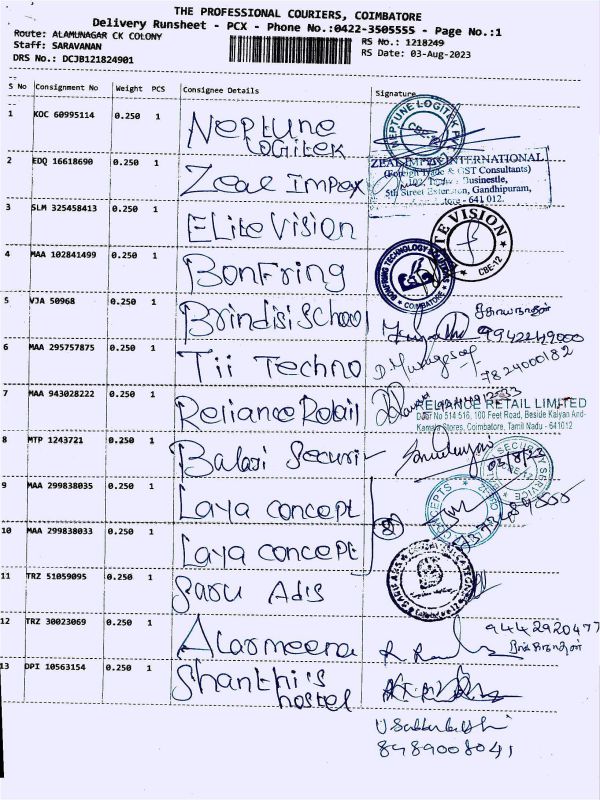 THE PROFESSIONAL COURIERS, COIMBATORE
Delivery Runsheet - PCX - Phone No.:0422-3505555 - Page No.:1
Route: ALAMUNAGAR CK COLONY
Staff: SARAVANAN
DRS No.: DCJB121824901
RS No.: 1218249
RS Date: 03-Aug-2023
S No Consignment No Weight PCS Consignee Details Signature
1 KOC 60995114 0.250 1 Neptune Logitek
NEPTUNE LOGITEK
CBE-12
2 EDQ 16618690 0.250 1 Zeal Impex
ZEAL IMPEX INTERNATIONAL
(Foreign Trade & GST Consultants)
5th Street Extension, Gandhipuram,
641 012.
3 SLM 325458413 0.250 1 Elite Vision
TE VISION
CBE-12
4 MAA 102841499 0.250 1 Bonfring
BONFRING TECHNOLOGY SOLUTIONS
COIMBATORE
5 VJA 50968 0.250 1 Brindisi School
9942249000
6 MAA 295757875 0.250 1 Tii Techno
7824000182
7 MAA 943028222 0.250 1 Reliance Retail
RELIANCE RETAIL LIMITED
Door No 514 516, 100 Feet Road, Beside Kalyan And-
Kamala Stores, Coimbatore, Tamil Nadu - 641012
8 MTP 1243721 0.250 1 Balaji Securi
03/8/23
SECURITY SERVICE
9 MAA 299838035 0.250 1 Laya concept
CONCEPTS
10 MAA 299838033 0.250 1 Laya concept
11 TRZ 51059095 0.250 1 Saru Ads
12 TRZ 30023069 0.250 1 Alarmeena
9442920477
13 DPI 10563154 0.250 1 Shanthi's hostel
8489008041